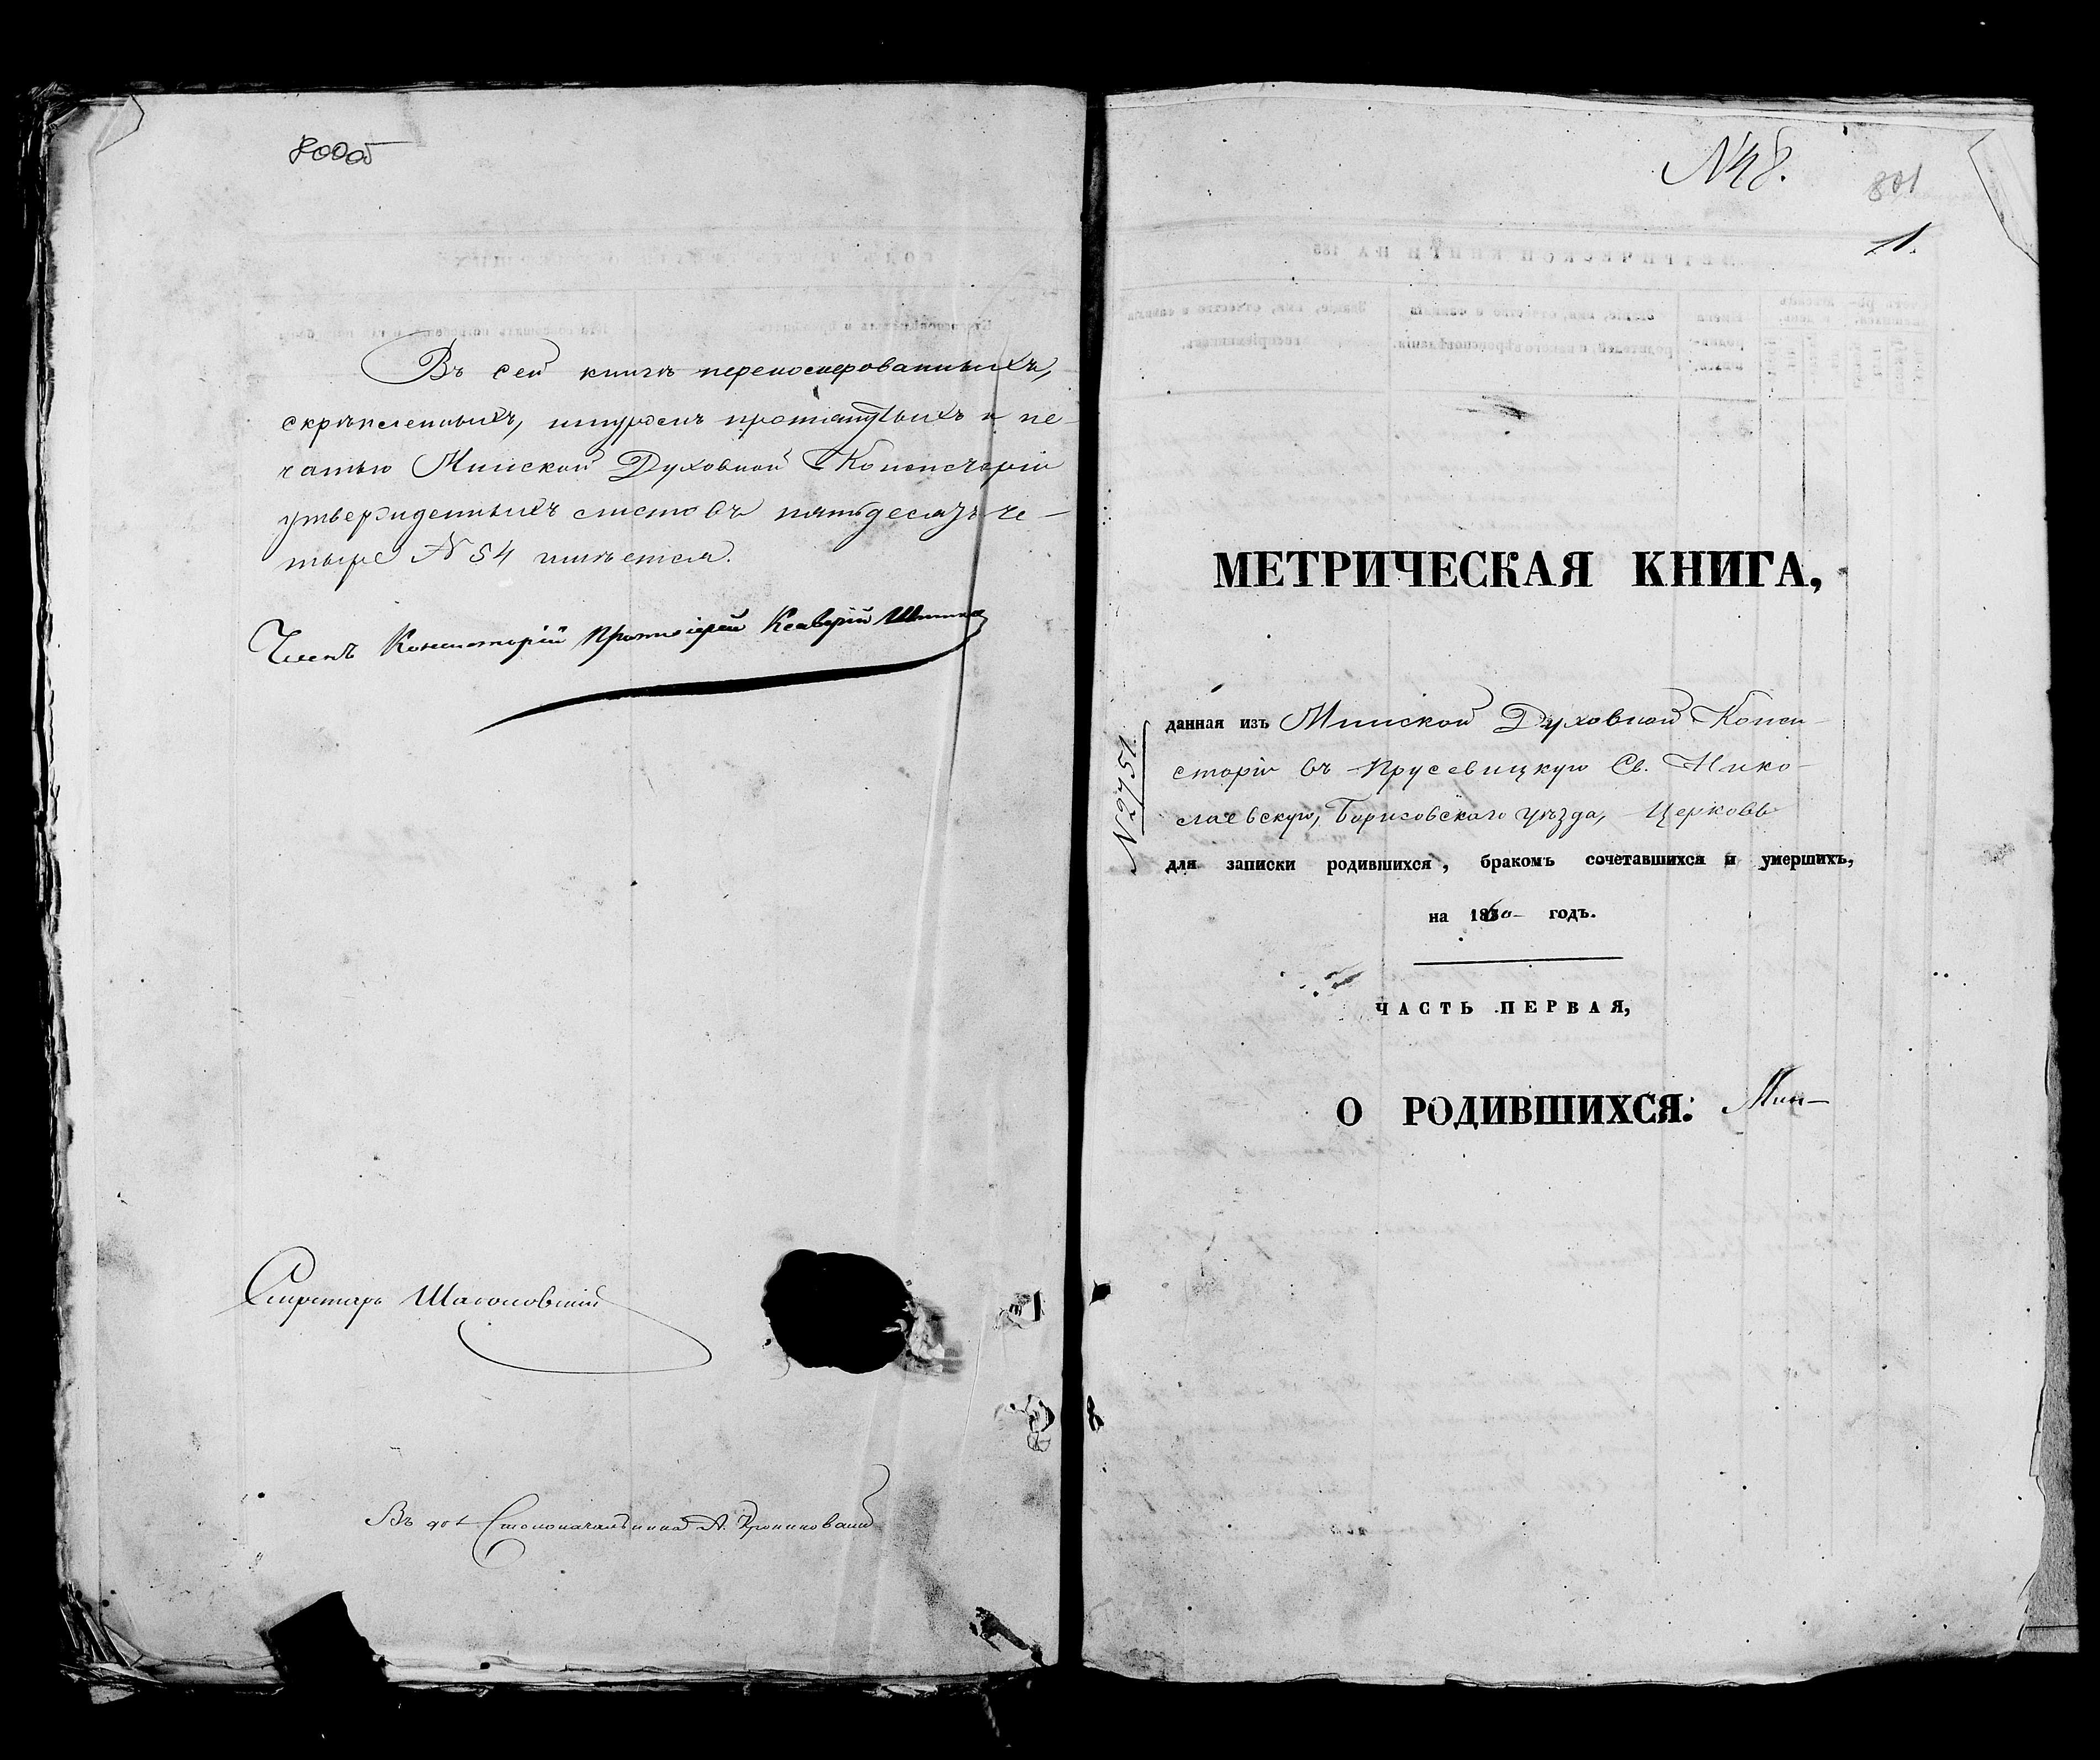 800об
Въ сей книгѣ перенумерованныхъ,
скрѣпленныхъ, шнуромъ протянутыхъ и пе-
чатью Минской Духовной Консисторіи
утвержденныхъ листовъ пятьдесятъ че-
тыре N 54 имѣется.
Членъ Консисторіи Протоіерей Ксаверій
Секретарь
Въ дол. Столоначальника А.
N48.
801
1.
МЕТРИЧЕСКАЯ КНИГА,
N 2451
данная изъ Минской Духовной Конси-
сторіи въ Прусевицкую Св. Нико-
лаевскую, Борисовскаго уѣзда, Церковь
для записки родившихся, бракомъ сочетавшихся и умершихъ,
на 1860 годъ.
ЧАСТЬ ПЕРВАЯ,
О РОДИВШИХСЯ. Мин-